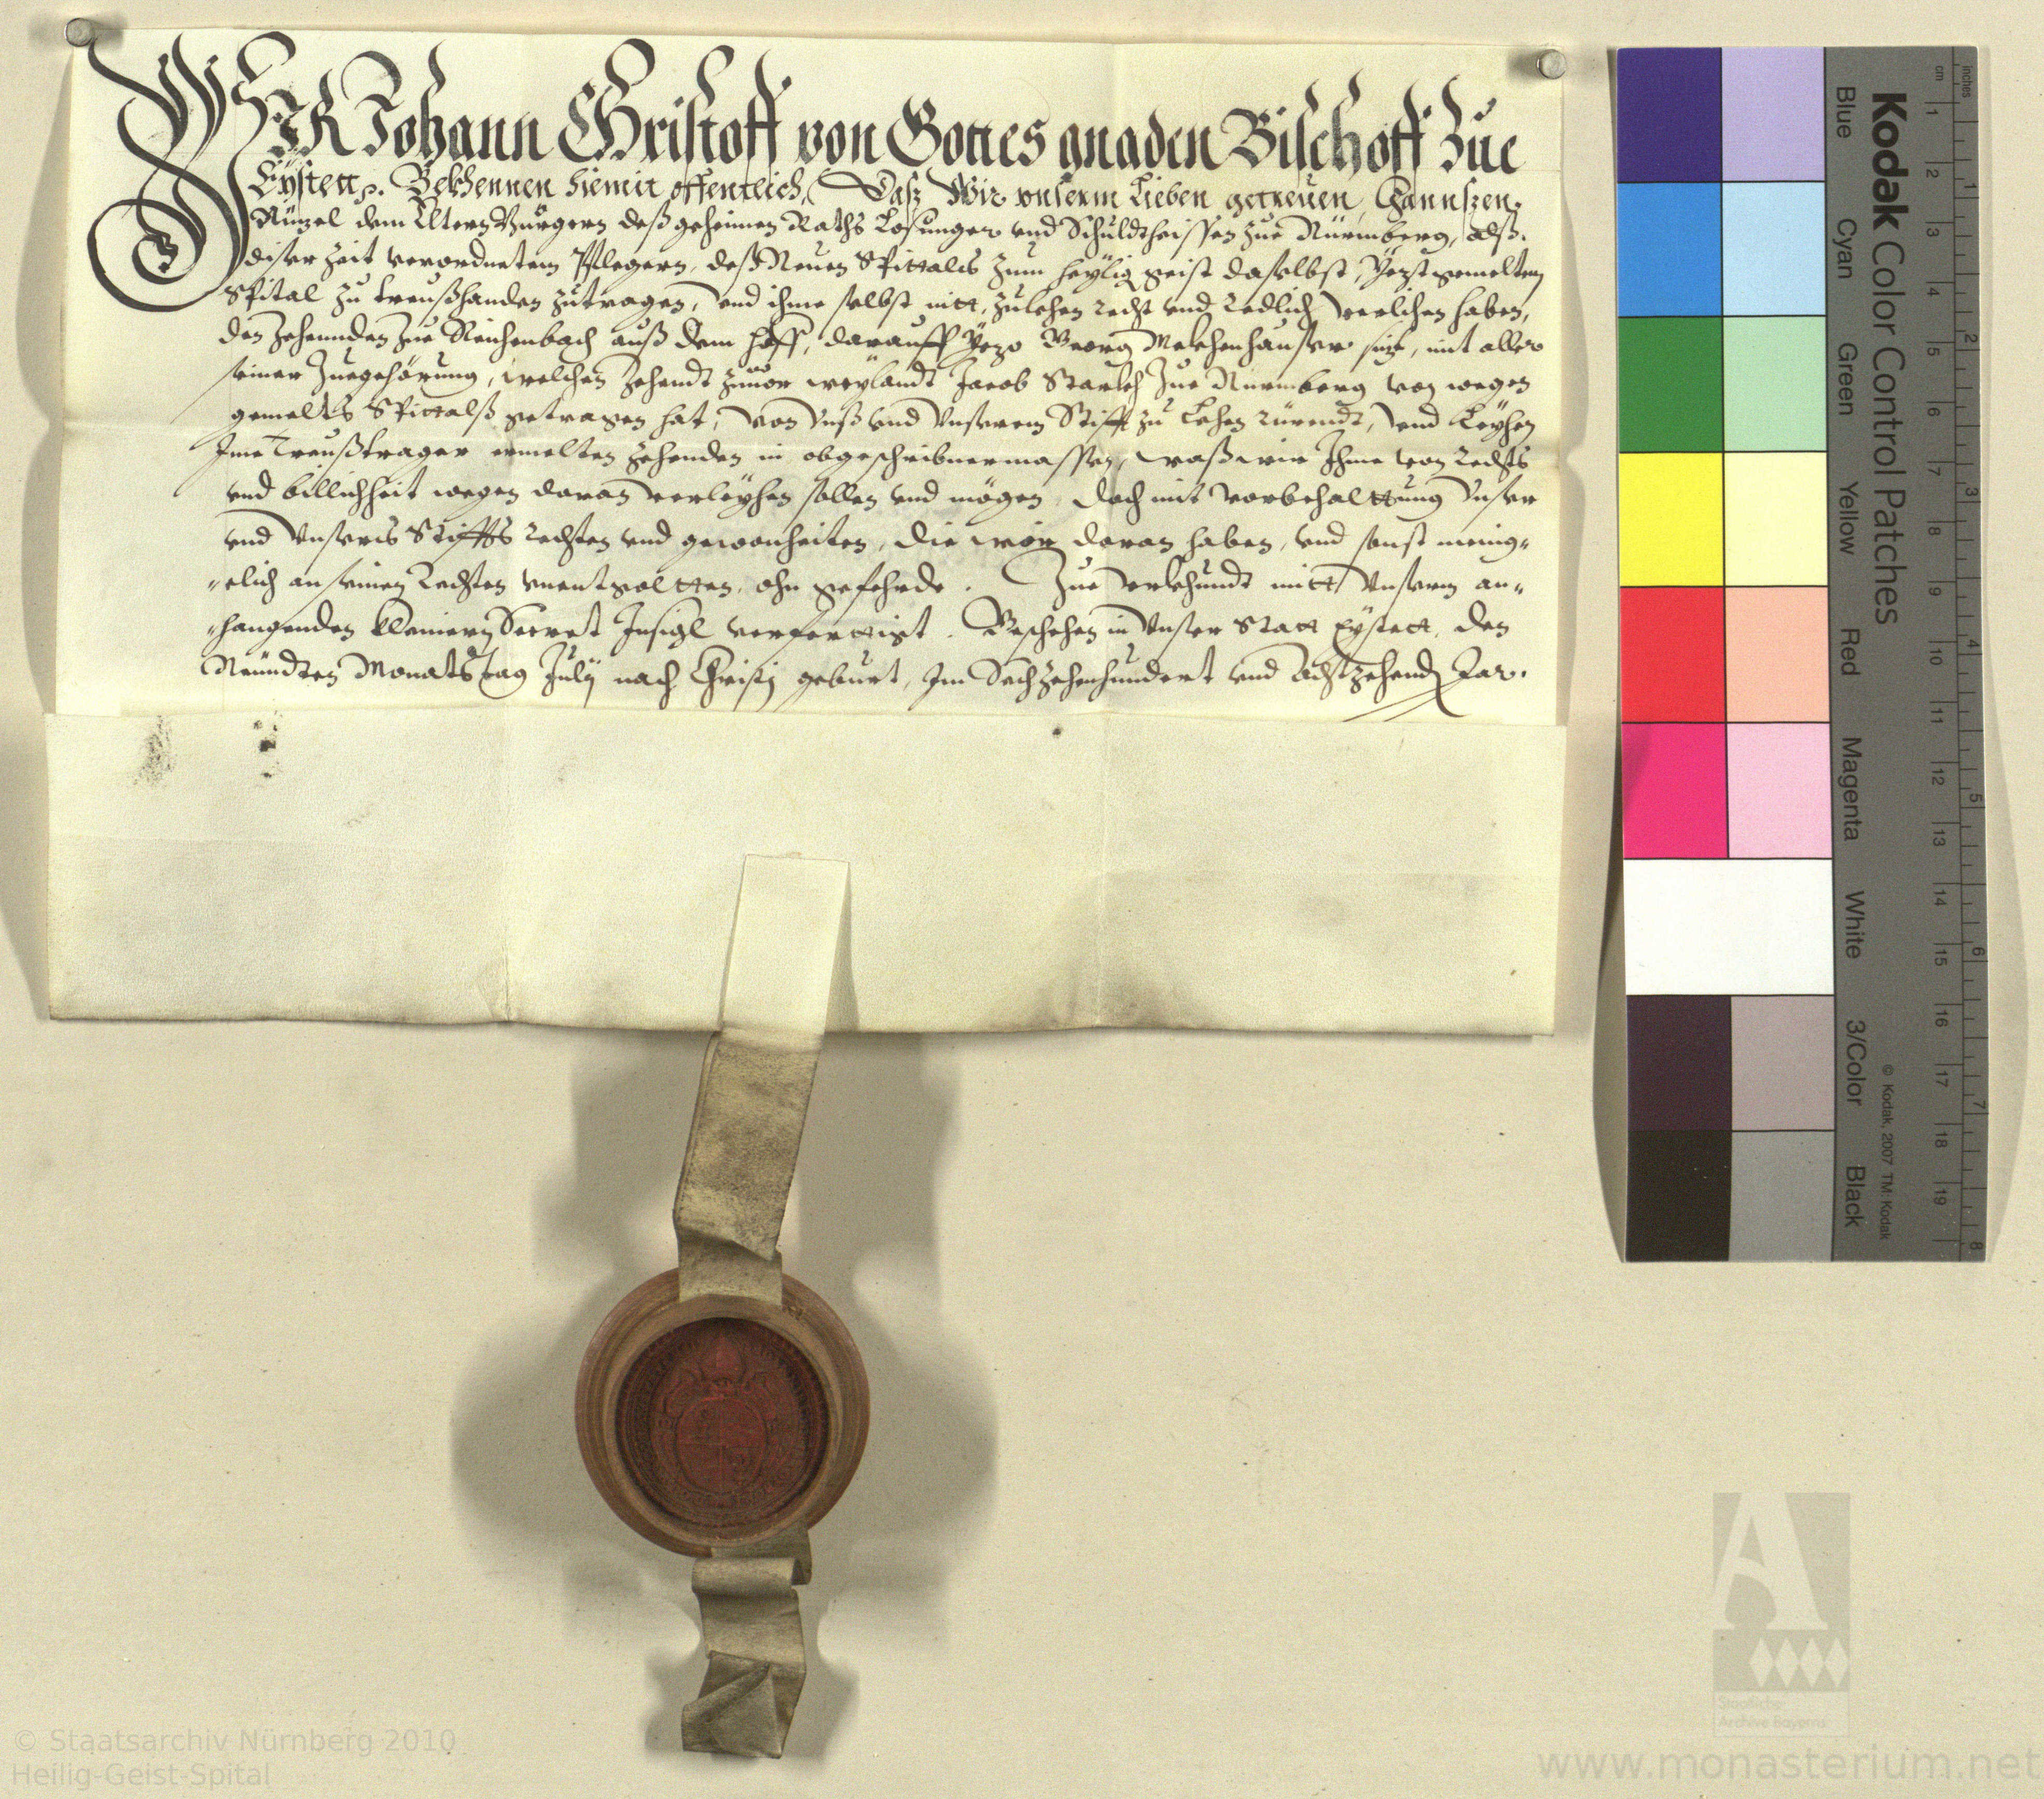 WIR Johann Christoff von Gottes gnaden Bischoff Zue
Eystett p. Bekhennen hiemit offentlich, Dasz Wir unserm Lieben getreuen, Hannszen
Nützel dem Eltern Burgern deß geheimen Raths Losunger und Schuldtheissen zue Nürmberg, alß
diser Zeit verordnetem Pflegern, deß Neuen Spittals zum heylig geist daselbst, Yezstgemeltem
Spital zu treußhanden zutragen, und ihme selbst nitt, zulehen recht und redlich verlihen haben,
den Zehennden zue Reichenbach auß dem hoff, darauff Yezo Georg sitzt, mit aller
seiner Zuegehörung, welchen Zehendt zuuor weylandt Jacob Starkh zue Nurmberg von wegen
gemelts Spittalß getragen hat, von Unß und Unserem Stifft zu Lehen rürendt, und Leyhen
Jme Treußtrager ermelten Zehenden in obgeschribnermassen, waß wir Jhme von rechts
und billichheit wegen daran verleyhen sollen und mögen, doch mit vorbehalttung Unser
und Unsers Stiffts rechten und gewonheiten, die wir daran haben, und sonst menig-
-elich an seinen Rechten unentgoltten, ohn gefehrde. Zue Urkhundt mitt Unserm an-
-hangenden kleinern Secret Insigl verferttigt. Beschehen in Unser Statt Eystett, den
Neundten Monatstag Julij nach Christj geburt, Im Sechzehenhundert und Achtzehend Jar.
Kodak Color Control Patches
Blue Cyan Green Yellow Red Magenta White 3/Color Black
© Kodak, 2007 TM: Kodak
inches 1 2 3 4 5 6 7 8
cm 1 2 3 4 5 6 7 8 9 10 11 12 13 14 15 16 17 18 19
Staatliche
Archive Bayerns
© Staatsarchiv Nürnberg 2010
Heilig-Geist-Spital
www.monasterium.net